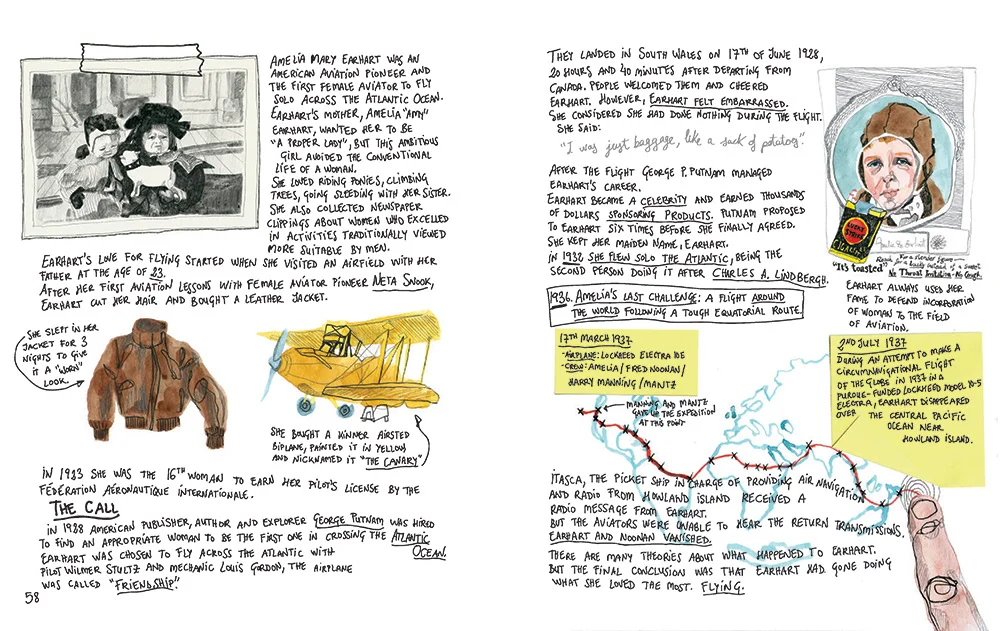 AMELIA MARY EARHART WAS AN
AMERICAN AVIATION PIONEER AND
THE FIRST FEMALE AVIATOR TO FLY
SOLO ACROSS THE ATLANTIC OCEAN.
EARHART'S MOTHER, AMELIA "AMY"
EARHART, WANTED HER TO BE
"A PROPER LADY", BUT THIS AMBITIOUS
GIRL AVOIDED THE CONVENTIONAL
LIFE OF A WOMAN.
SHE LOVED RIDING PONIES, CLIMBING
TREES, GOING SLEDDING WITH HER SISTER.
SHE ALSO COLLECTED NEWSPAPER
CLIPPINGS ABOUT WOMEN WHO EXCELLED
IN ACTIVITIES TRADITIONALLY VIEWED
MORE SUITABLE BY MEN.
EARHART'S LOVE FOR FLYING STARTED WHEN SHE VISITED AN AIRFIELD WITH HER
FATHER AT THE AGE OF 23.
AFTER HER FIRST AVIATION LESSONS WITH FEMALE AVIATOR PIONEER NETA SNOOK,
EARHART CUT HER HAIR AND BOUGHT A LEATHER JACKET.
SHE SLEPT IN HER
JACKET FOR 3
NIGHTS TO GIVE
IT A "WORN"
LOOK.
SHE BOUGHT A KINNER AIRSTED
BIPLANE, PAINTED IT IN YELLOW
AND NICKNAMED IT "THE CANARY"
IN 1933 SHE WAS THE 16TH WOMAN TO EARN HER PILOT'S LICENSE BY THE
FÉDÉRATION AÉRONAUTIQUE INTERNATIONALE.
THE CALL
IN 1938 AMERICAN PUBLISHER, AUTHOR AND EXPLORER GEORGE PUTNAM WAS HIRED
TO FIND AN APPROPRIATE WOMAN TO BE THE FIRST ONE IN CROSSING THE ATLANTIC
OCEAN.
EARHART WAS CHOSEN TO FLY ACROSS THE ATLANTIC WITH
PILOT WILMER STULTZ AND MECHANIC LOUIS GORDON, THE AIRPLANE
WAS CALLED "FRIENDSHIP".
58
THEY LANDED IN SOUTH WALES ON 17TH OF JUNE 1928,
20 HOURS AND 40 MINUTES AFTER DEPARTING FROM
CANADA. PEOPLE WELCOMED THEM AND CHEERED
EARHART. HOWEVER, EARHART FELT EMBARRASSED.
SHE CONSIDERED SHE HAD DONE NOTHING DURING THE FLIGHT.
SHE SAID:
"I was just baggage, like a sack of potatoes".
AFTER THE FLIGHT GEORGE P. PUTNAM MANAGED
EARHART'S CAREER.
EARHART BECAME A CELEBRITY AND EARNED THOUSANDS
OF DOLLARS SPONSORING PRODUCTS. PUTNAM PROPOSED
TO EARHART SIX TIMES BEFORE SHE FINALLY AGREED.
SHE KEPT HER MAIDEN NAME, EARHART.
IN 1932 SHE FLEW SOLO THE ATLANTIC, BEING THE
SECOND PERSON DOING IT AFTER CHARLES A. LINDBERGH.
LUCKY
STRIKE
Amelia Earhart
"It's toasted"
For a slender figure—
Reach for a Lucky instead of a sweet
No Throat Irritation - No Cough.
EARHART ALWAYS USED HER
FAME TO DEFEND INCORPORATION
OF WOMAN TO THE FIELD
OF AVIATION.
1936. AMELIA'S LAST CHALLENGE: A FLIGHT AROUND
THE WORLD FOLLOWING A TOUGH EQUATORIAL ROUTE.
17TH MARCH 1937
- AIRPLANE: LOCKHEED ELECTRA 10E
- CREW: AMELIA / FRED NOONAN /
HARRY MANNING / MANTZ
MANNING AND MANTZ
GAVE UP THE EXPEDITION
AT THIS POINT
2ND JULY 1937
DURING AN ATTEMPT TO MAKE A
CIRCUMNAVIGATIONAL FLIGHT
OF THE GLOBE IN 1937 IN A
PURDUE-FUNDED LOCKHEED MODEL 10-5
ELECTRA, EARHART DISAPPEARED
OVER THE CENTRAL PACIFIC
OCEAN NEAR
HOWLAND ISLAND.
ITASCA, THE PICKET SHIP IN CHARGE OF PROVIDING AIR NAVIGATION
AND RADIO FROM HOWLAND ISLAND RECEIVED A
RADIO MESSAGE FROM EARHART.
BUT THE AVIATORS WERE UNABLE TO HEAR THE RETURN TRANSMISSIONS.
EARHART AND NOONAN VANISHED.
THERE ARE MANY THEORIES ABOUT WHAT HAPPENED TO EARHART.
BUT THE FINAL CONCLUSION WAS THAT EARHART HAD GONE DOING
WHAT SHE LOVED THE MOST. FLYING.